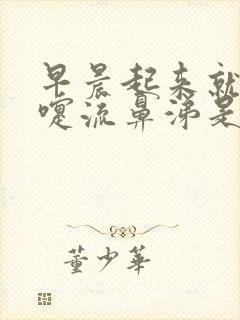 早晨起来就
嚏流鼻涕是
董少华